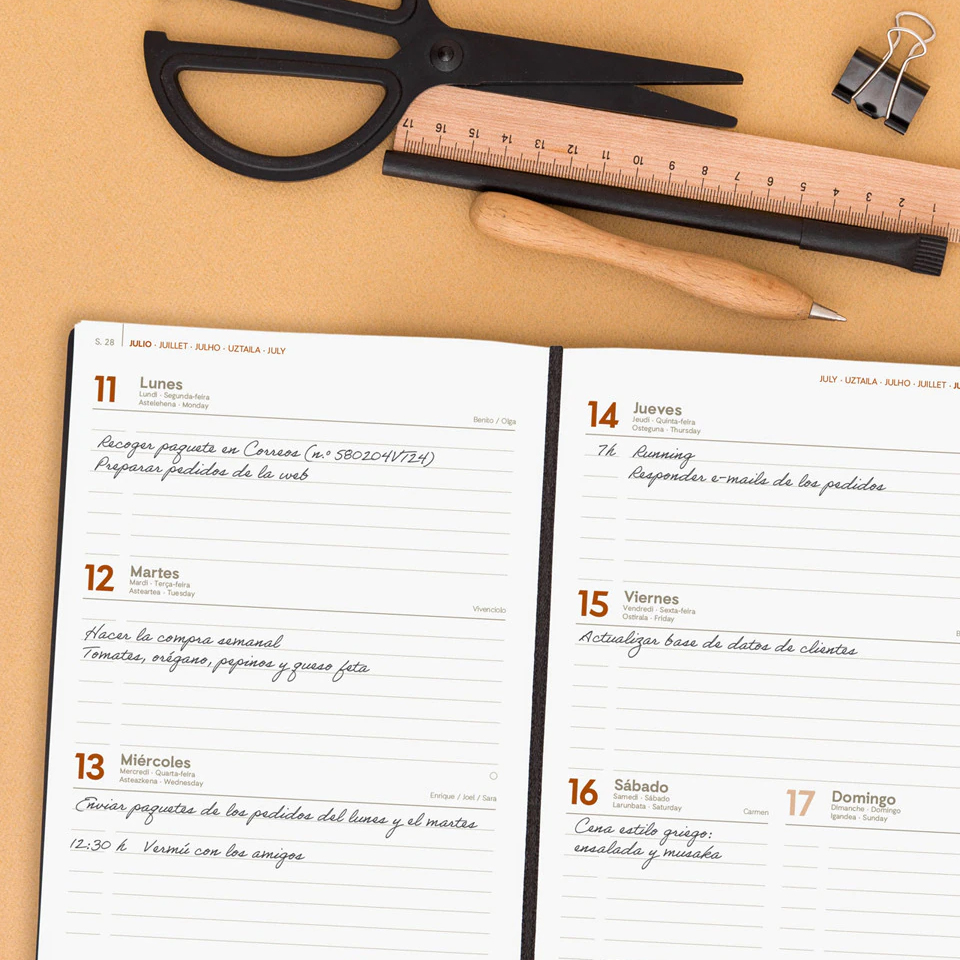 17 16 15 14 13 12 11 10 9 8 7 6 5 4 3 2 1
S. 28 JULIO · JUILLET · JULHO · UZTAILA · JULY
11 Lunes
Lundi · Segunda-feira
Astelehena · Monday
Benito / Olga
Recoger paquete en Correos (n.º 580204V724)
Preparar pedidos de la web
12 Martes
Mardi · Terça-feira
Asteartea · Tuesday
Vivenciolo
Hacer la compra semanal
Tomates, orégano, pepinos y queso feta
13 Miércoles
Mercredi · Quarta-feira
Asteazkena · Wednesday
Enrique / Joel / Sara
Enviar paquetes de los pedidos del lunes y el martes
12:30 h Vermú con los amigos
JULY · UZTAILA · JULHO · JUILLET ·
14 Jueves
Jeudi · Quinta-feira
Osteguna · Thursday
7h Running
Responder e-mails de los pedidos
15 Viernes
Vendredi · Sexta-feira
Ostirala · Friday
Actualizar base de datos de clientes
16 Sábado
Samedi · Sábado
Larunbata · Saturday
Carmen
Cena estilo griego:
ensalada y musaka
17 Domingo
Dimanche · Domingo
Igandea · Sunday